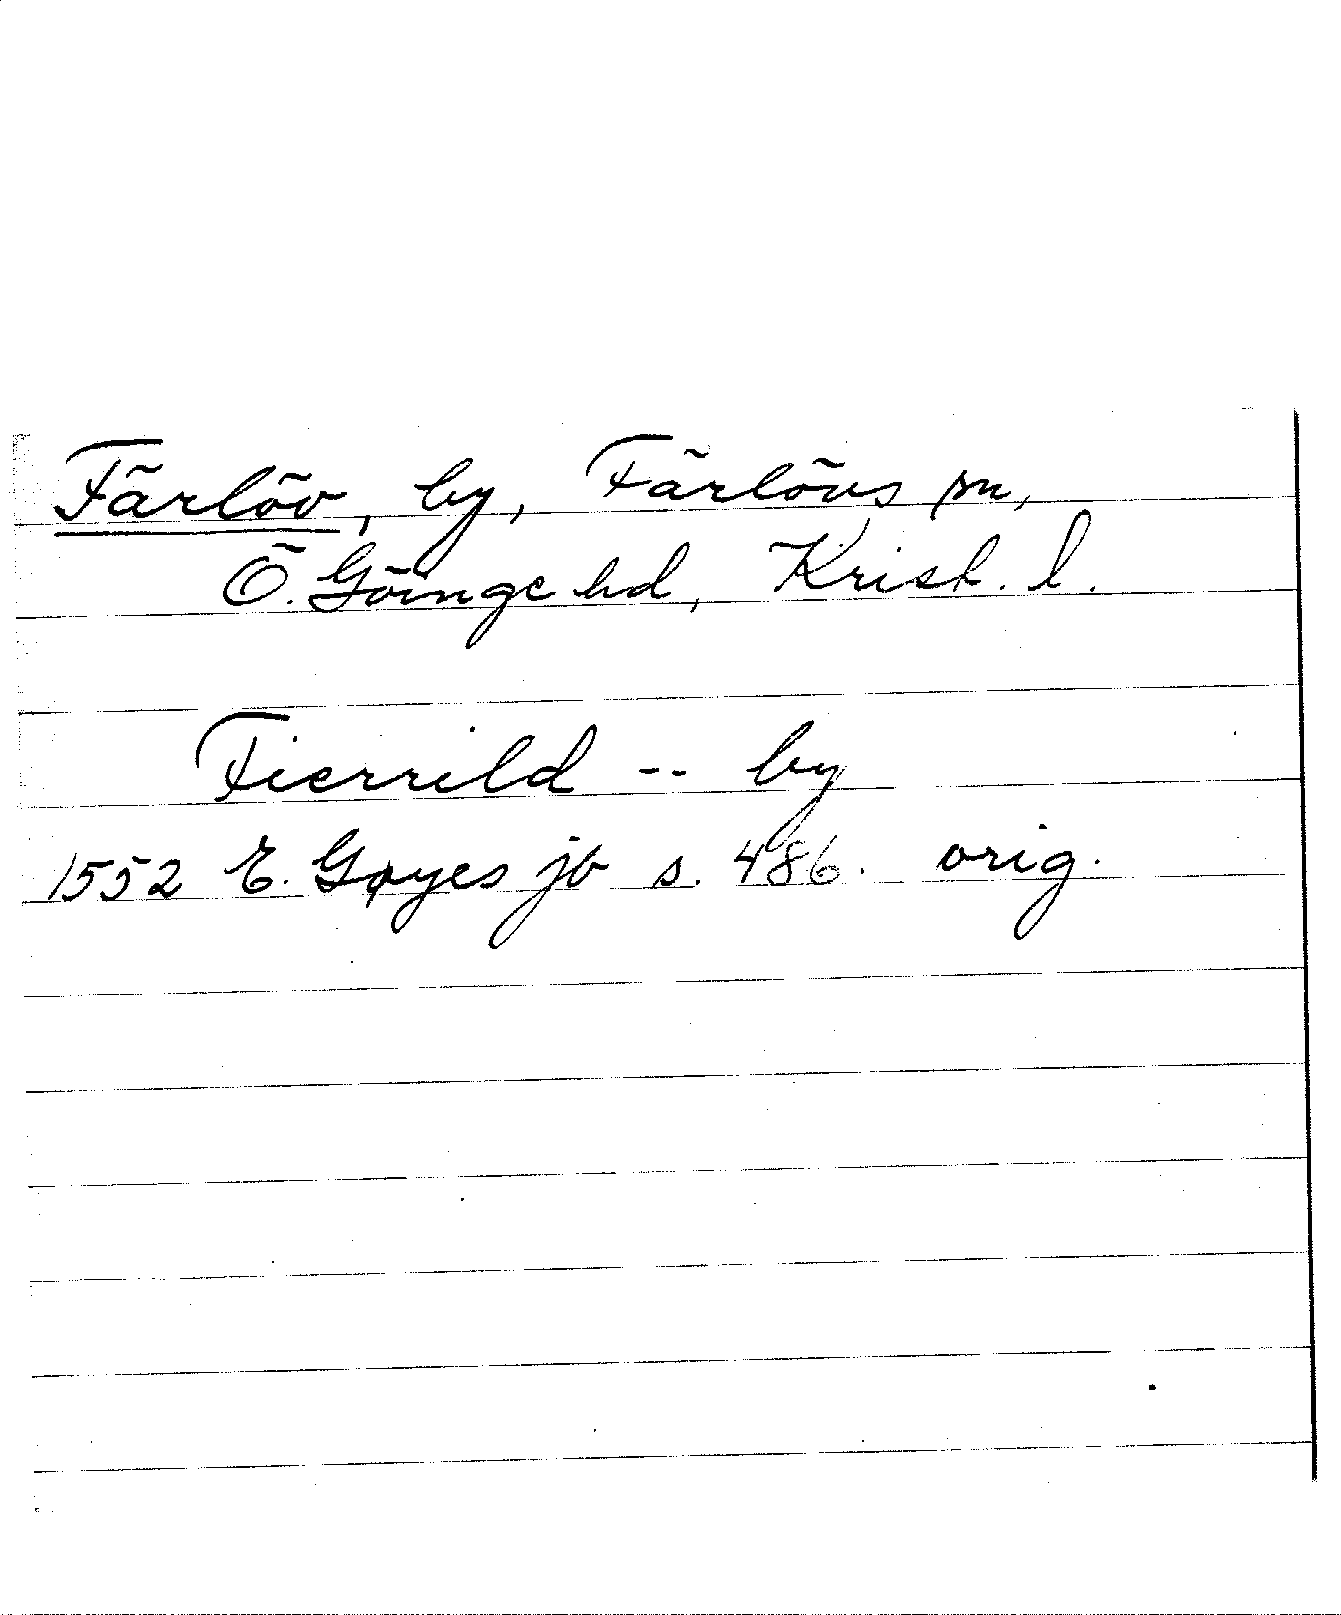 Färlöv, by, Färlövs sn,
Ö. Göinge hd, Krist. l.
Fierrild -- by
1552 E. Gøyes jb s. 486. orig.